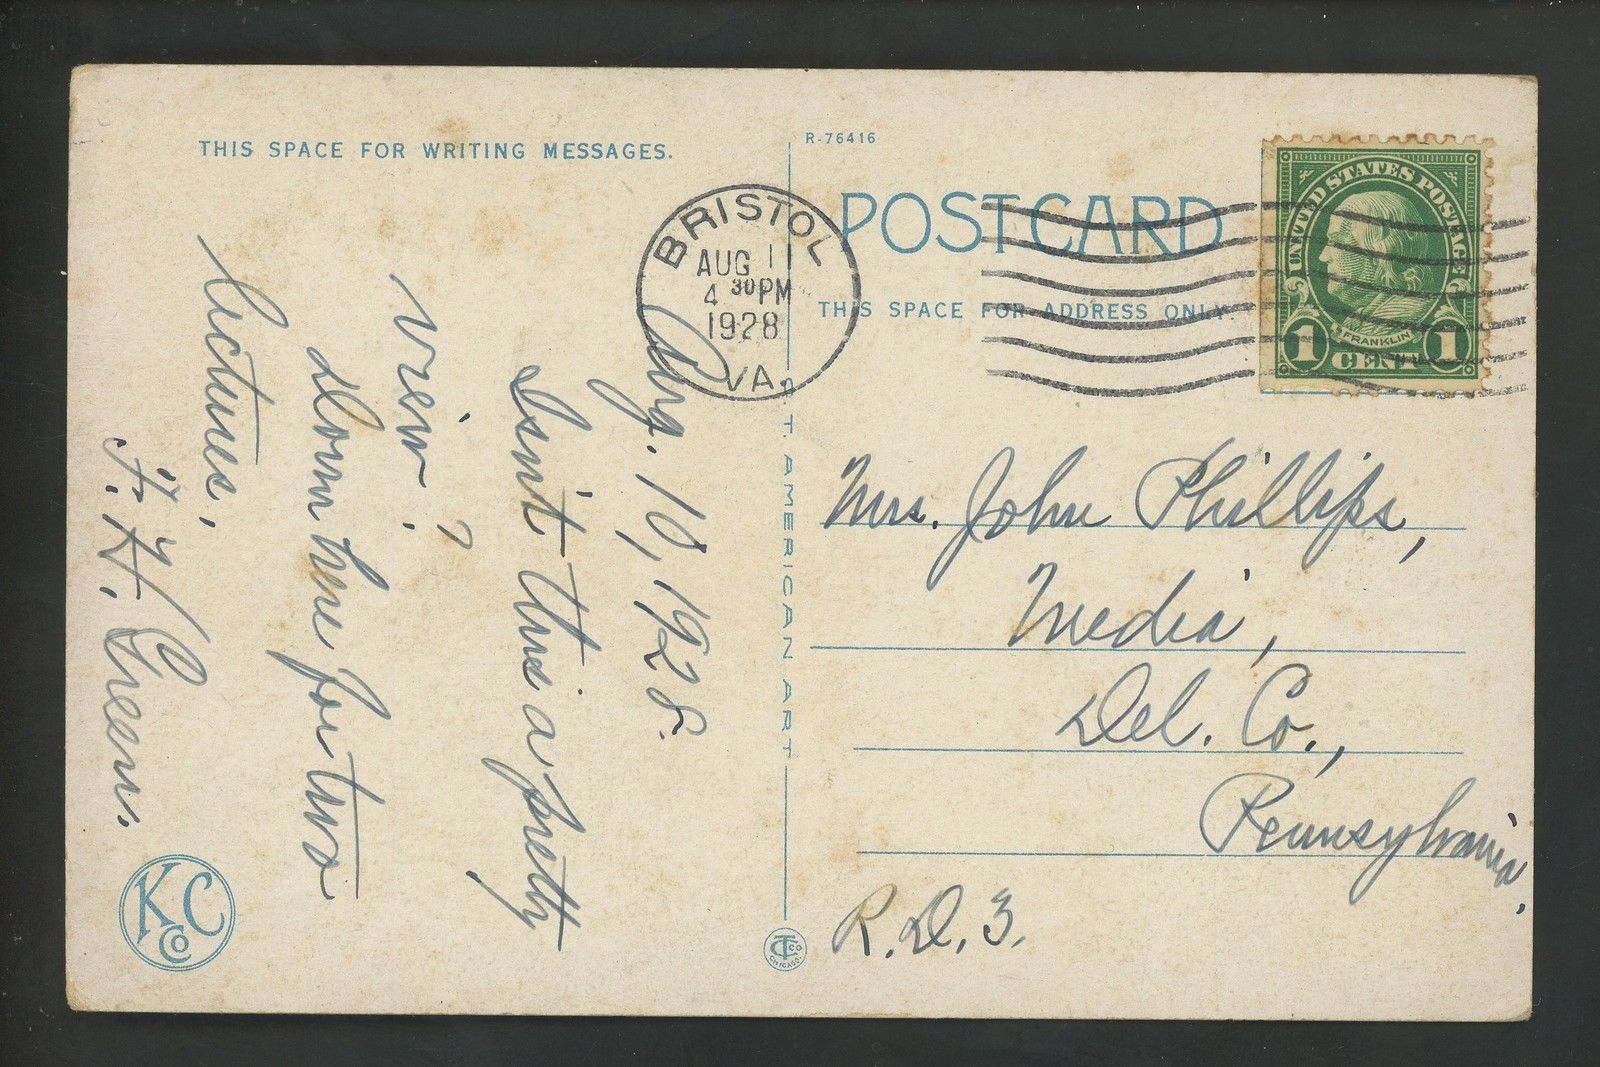 THIS SPACE FOR WRITING MESSAGES.
Aug. 10, 1928.
Isn't this a pretty
view ?
Down here for two
lectures.
F. H. Green.
KCCo
BRISTOL
AUG 11
4 30PM
1928
VA.
C.T. AMERICAN ART
CTCo
CHICAGO.
R-76416
POST CARD
THIS SPACE FOR ADDRESS ONLY.
UNITED STATES POSTAGE
FRANKLIN
1 CENT 1
Mrs. John Phillips,
Media,
Del. Co.,
Pennsylvania,
R.D. 3.